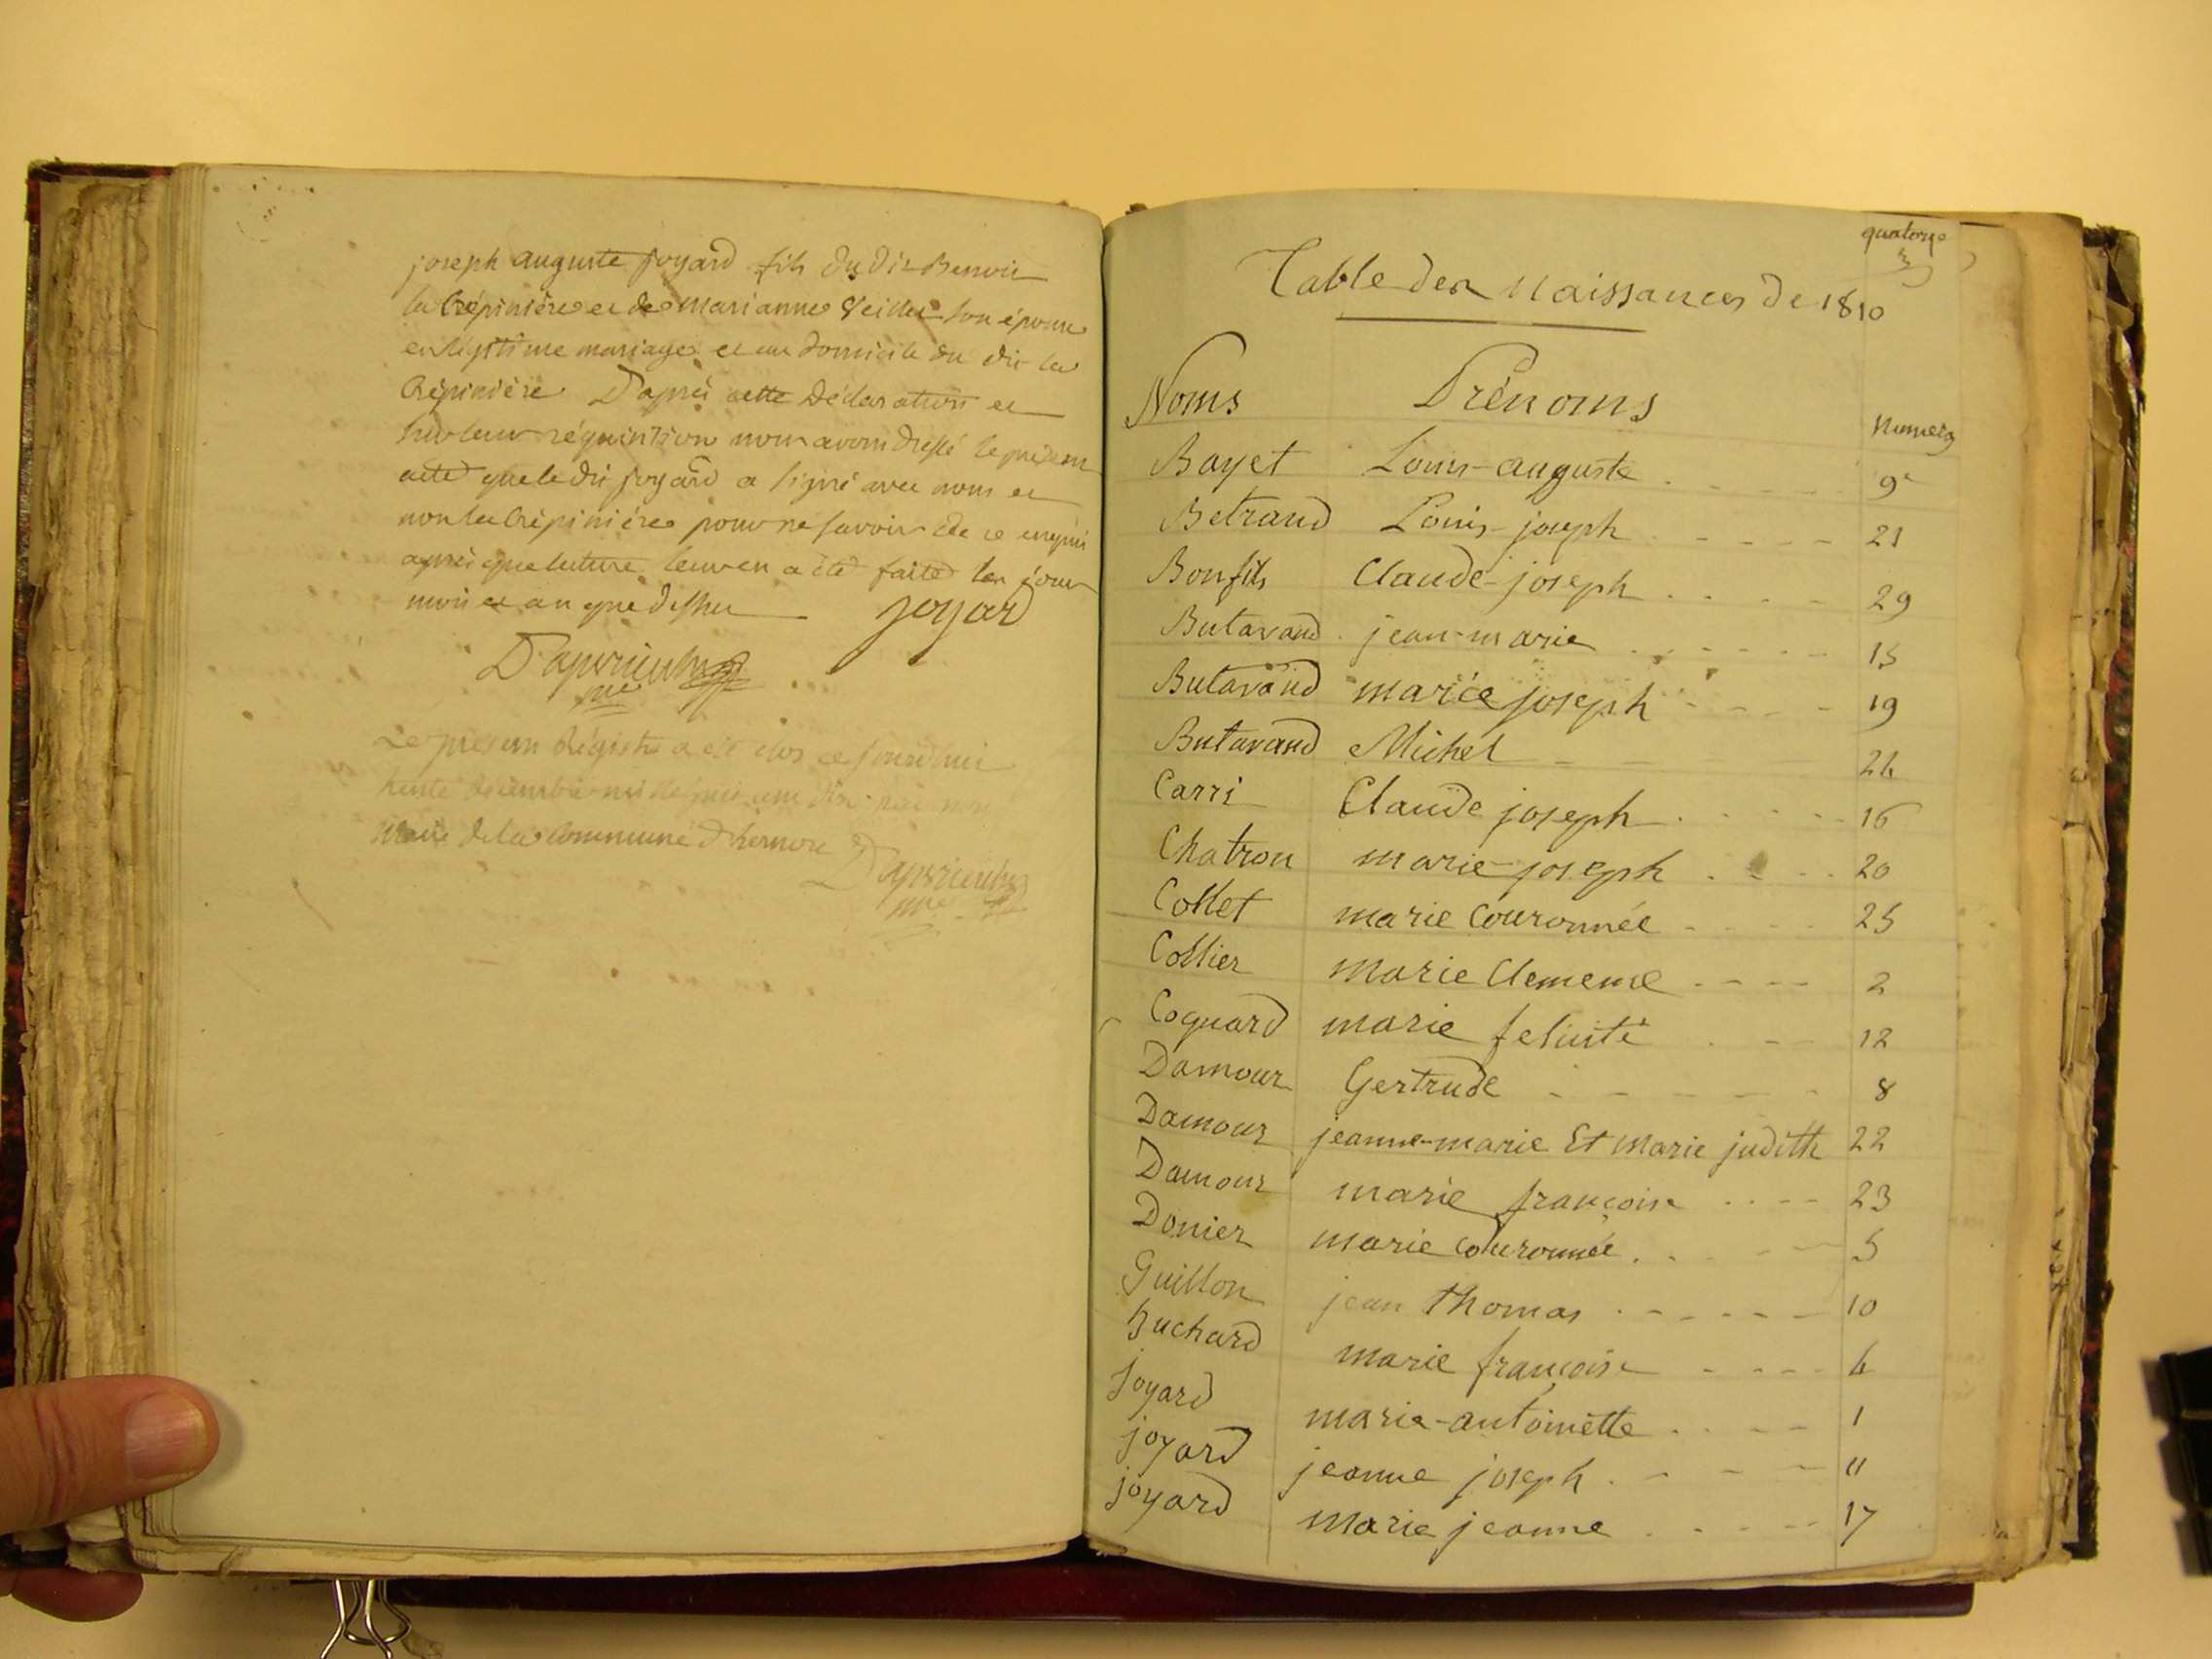 joseph auguste joyard fils du dit Benoit
la Crépinière et de marianne Veillet son épouse
en légitime mariage et au domicile du dit la
Crépinière D'après cette Déclaration et
sur leur réquisition nous avons dressé le présent
acte que le dit joyard a signé avec nous et
non la Crépinière pour ne savoir de ce enquis
après que lecture leur en a été faite les jour
mois et an que dessus joyard
Le présent Régistre a été clos ce jourd'hui
trente décembre mil huit cent dix par nous
Maire de la commune d'hernore
quatorze
Table des Naissances de 1810
Noms Prénoms Numéros
Bayet Louis-auguste 9
Betrand Louis-joseph 21
Bonfils Claude-joseph 29
Butavand jean-marie 15
Butavand marie joseph 19
Butavand Michel 26
Carri Claude joseph 16
Chatron marie-joseph 20
Collet marie Couronnée 25
Collier Marie Clemence 2
Coquard marie felicité 12
Damour Gertrude 8
Damour jeanne-marie Et Marie judith 22
Damour marie françoise 23
Donier marie couronnée 5
Guillon jean Thomas 10
huchard marie françoise 6
joyard marie-antoinette 1
joyard jeanne joseph 11
joyard Marie jeanne 17